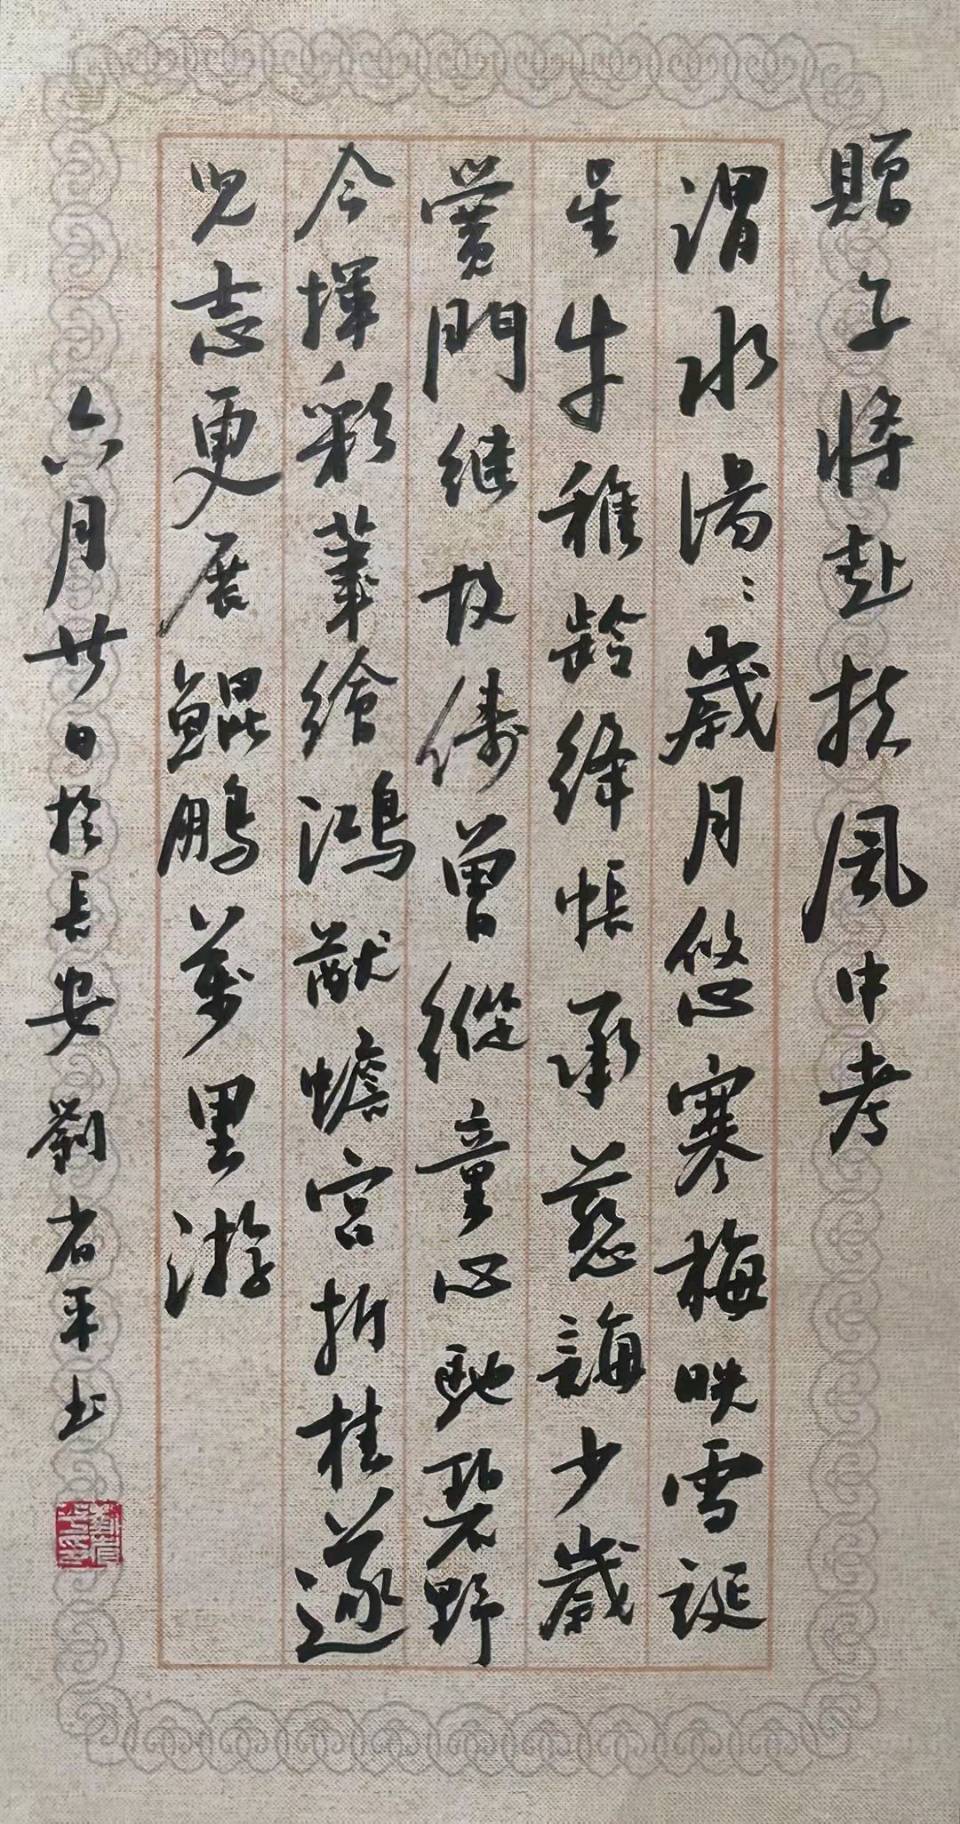 贈子將赴扶風中考
渭水湯〻歲月悠寒梅映雪誕
星牛稚齡絳帳承慈誨少歲
黌門继故儔曾縱童心馳碧野
今揮彩筆繪鴻猷蟾宮折桂遂
兒志更展鯤鵬萬里游
六月廿日於長安劉省平书